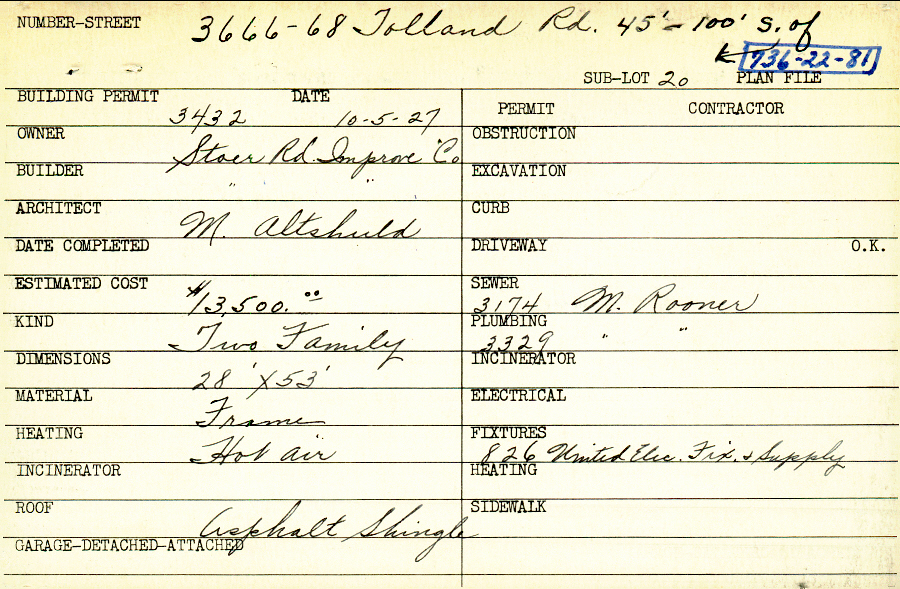 NUMBER-STREET 3666-68 Tolland Rd. 45' - 100' S. of
736-22-81
SUB-LOT 20 PLAN FILE
BUILDING PERMIT 3432 DATE 10-5-27
PERMIT CONTRACTOR
OWNER Stoer Rd. Improve Co
OBSTRUCTION
BUILDER " "
EXCAVATION
ARCHITECT M. Altshuld
CURB
DATE COMPLETED
DRIVEWAY O.K.
ESTIMATED COST $13,500.00
SEWER 3174 M. Rooner
KIND Two Family
PLUMBING 3329 " "
DIMENSIONS 28' X 53'
INCINERATOR
MATERIAL Frame
ELECTRICAL
HEATING Hot air
FIXTURES 826 United Elec. Fix. & Supply
INCINERATOR
HEATING
ROOF Asphalt Shingle
SIDEWALK
GARAGE-DETACHED-ATTACHED